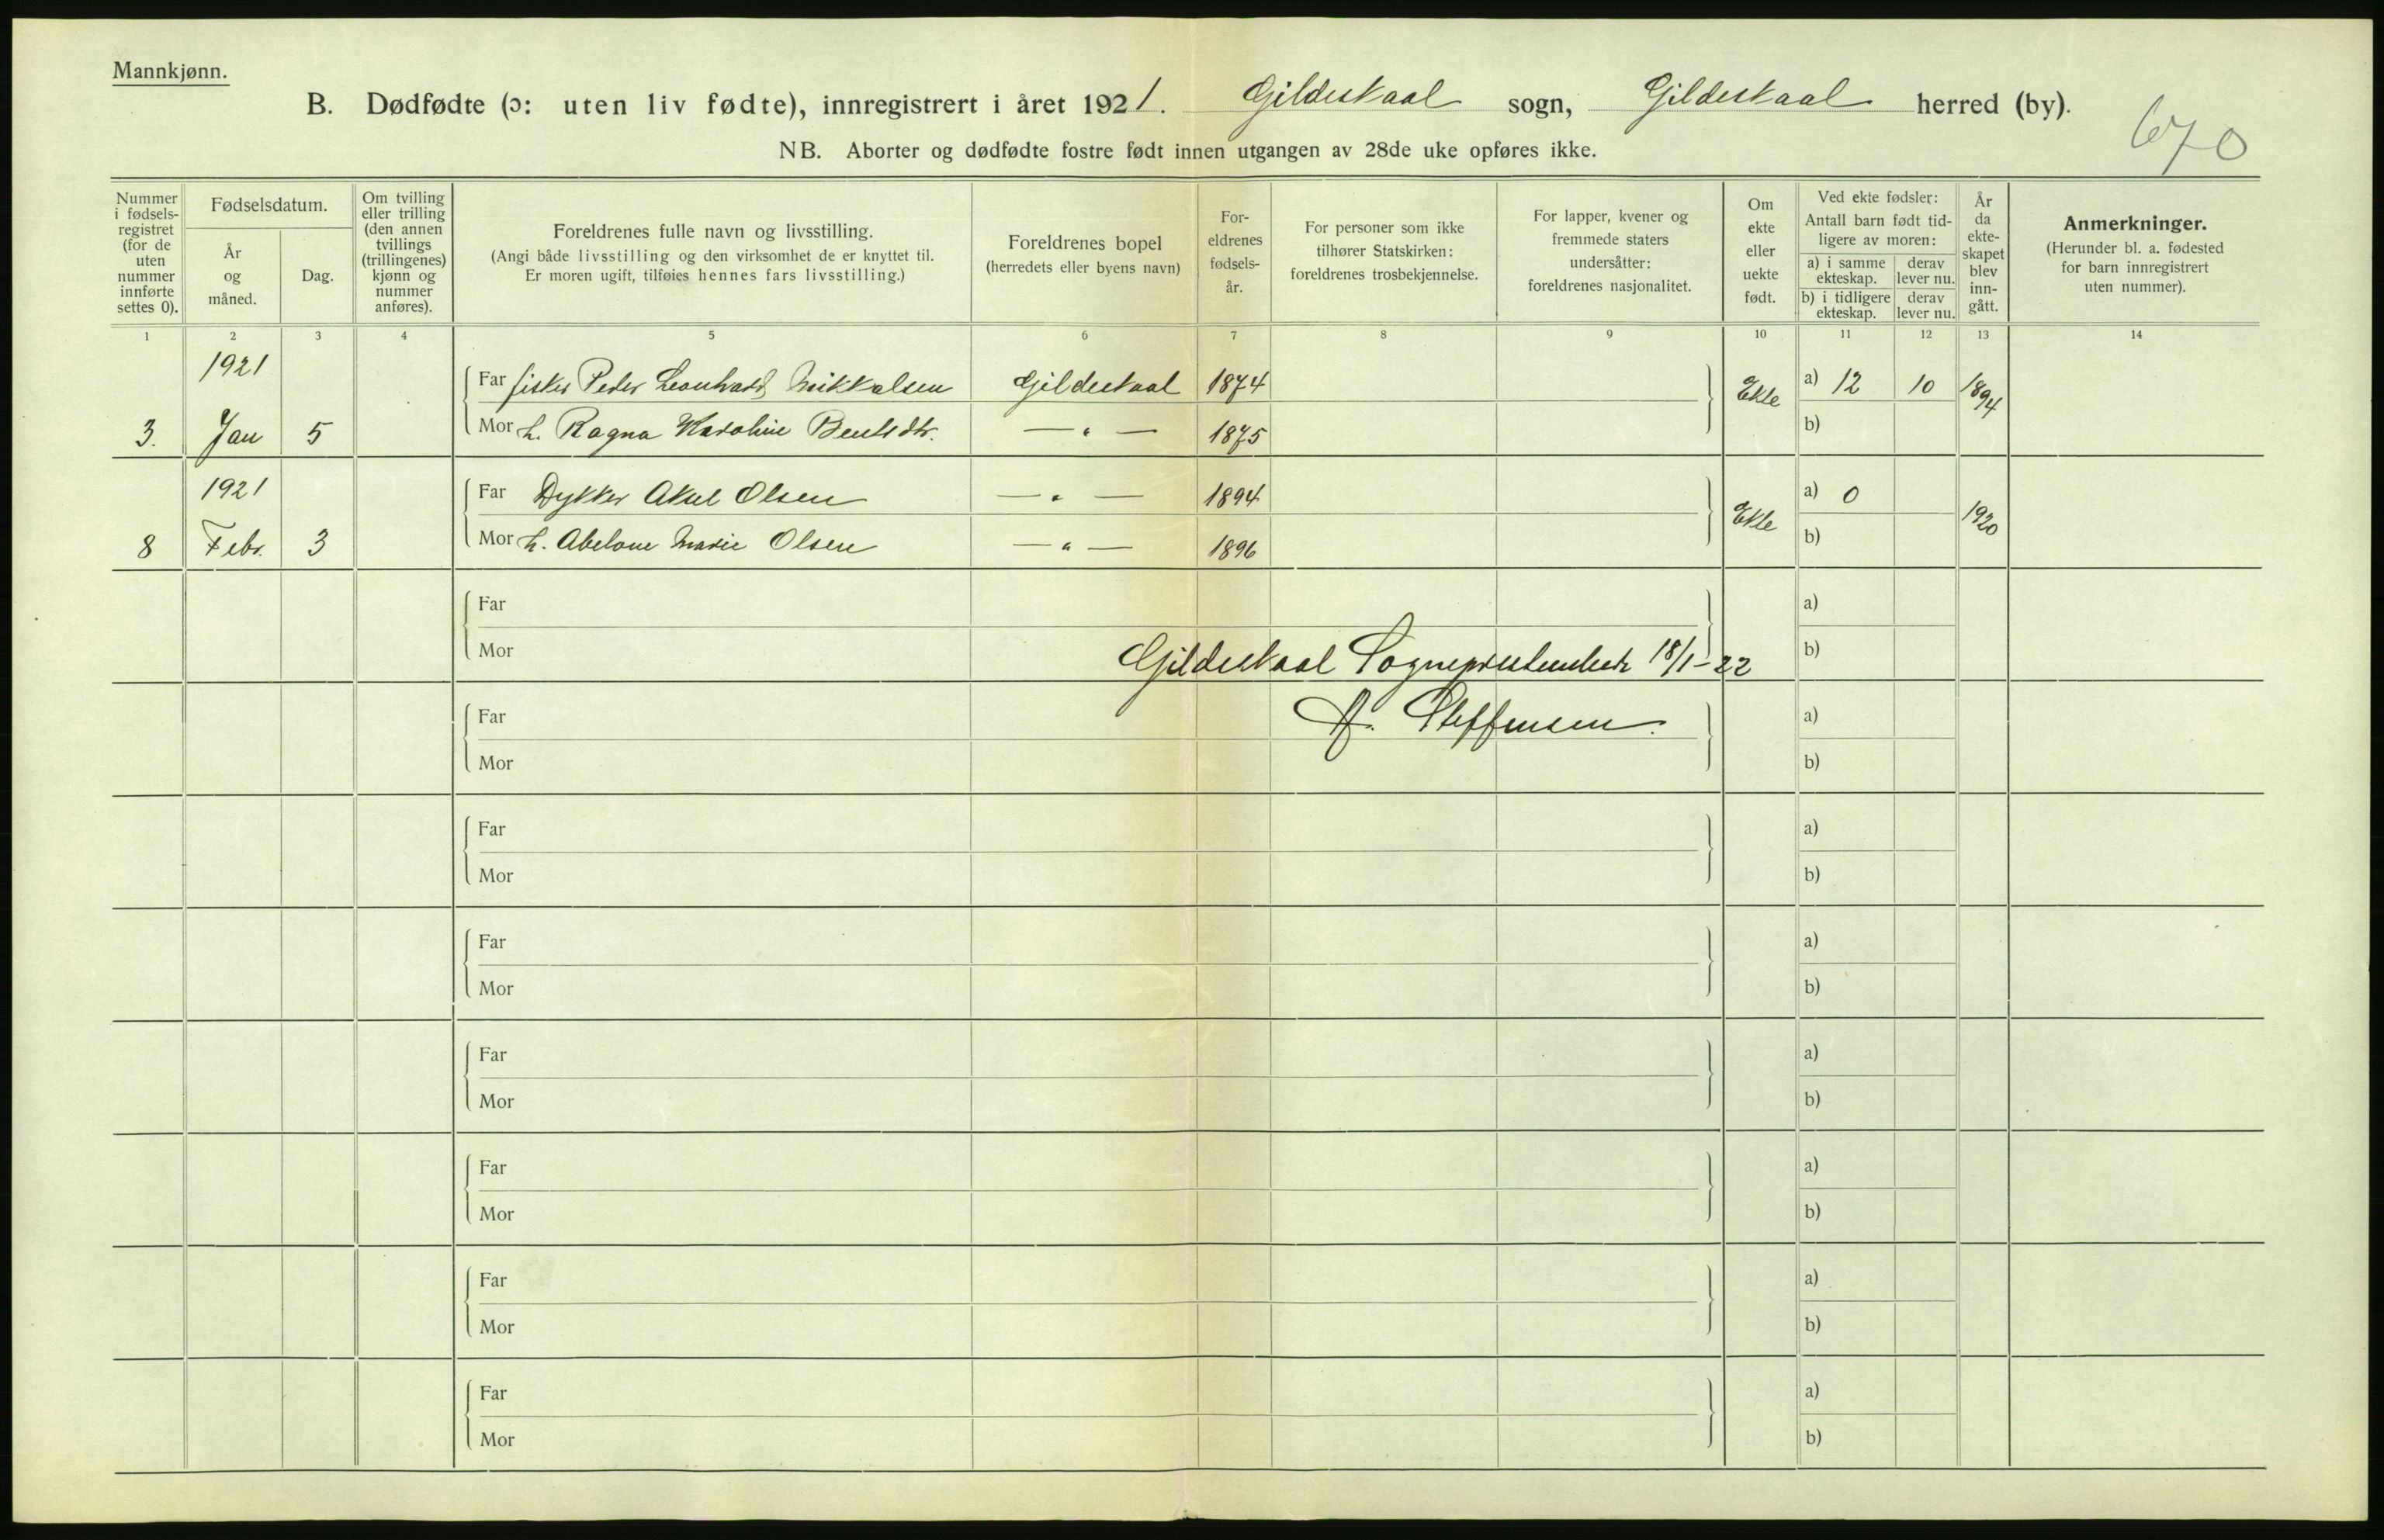 Mannkjønn.
B. Dødfødte (ɔ: uten liv fødte), innregistrert i året 1921. Gildeskaal sogn, Gildeskaal herred (by).
670
NB. Aborter og dødfødte fostre født innen utgangen av 28de uke opføres ikke.
Nummer i fødsels-registret (for de uten nummer innførte settes 0).
Fødselsdatum.
År og måned.
Dag.
Om tvilling eller trilling (den annen tvillings (trillingenes) kjønn og nummer anføres).
Foreldrenes fulle navn og livsstilling.
(Angi både livsstilling og den virksomhet de er knyttet til. Er moren ugift, tilføies hennes fars livsstilling.)
Foreldrenes bopel
(herredets eller byens navn)
For-eldrenes fødsels-år.
For personer som ikke tilhører Statskirken: foreldrenes trosbekjennelse.
For lapper, kvener og fremmede staters undersåtter: foreldrenes nasjonalitet.
Om ekte eller uekte født.
Ved ekte fødsler:
Antall barn født tid-ligere av moren:
a) i samme ekteskap.
derav lever nu.
b) i tidligere ekteskap.
derav lever nu.
År da ekte-skapet blev inn-gått.
Anmerkninger.
(Herunder bl. a. fødested for barn innregistrert uten nummer).
1 2 3 4 5 6 7 8 9 10 11 12 13 14
1921
Far fisker Peder Leonhard Mikkalsen Gildeskaal 1874 Ekte a) 12 10 1894
3. Jan 5 Mor h. Ragna Karoline Bentsdtr. —"— 1875 b)
1921
Far Dykker Aksel Olsen —"— 1894 Ekte a) 0 1920
8 Febr. 3 Mor h. Abelone Marie Olsen —"— 1896 b)
Far a)
Mor b)
Gildeskaal Sogneprestembede 18/1-22
Far a)
Steffensen.
Mor b)
Far a)
Mor b)
Far a)
Mor b)
Far a)
Mor b)
Far a)
Mor b)
Far a)
Mor b)
Far a)
Mor b)